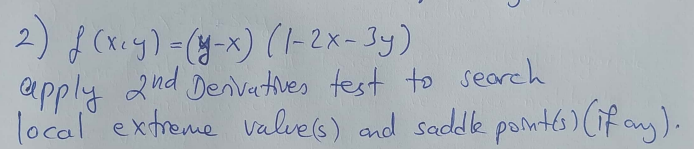 2) f(x,y) = (y-x) (1-2x-3y)
apply 2nd Derivatives test to search
local extreme value(s) and saddle point(s) (if any).